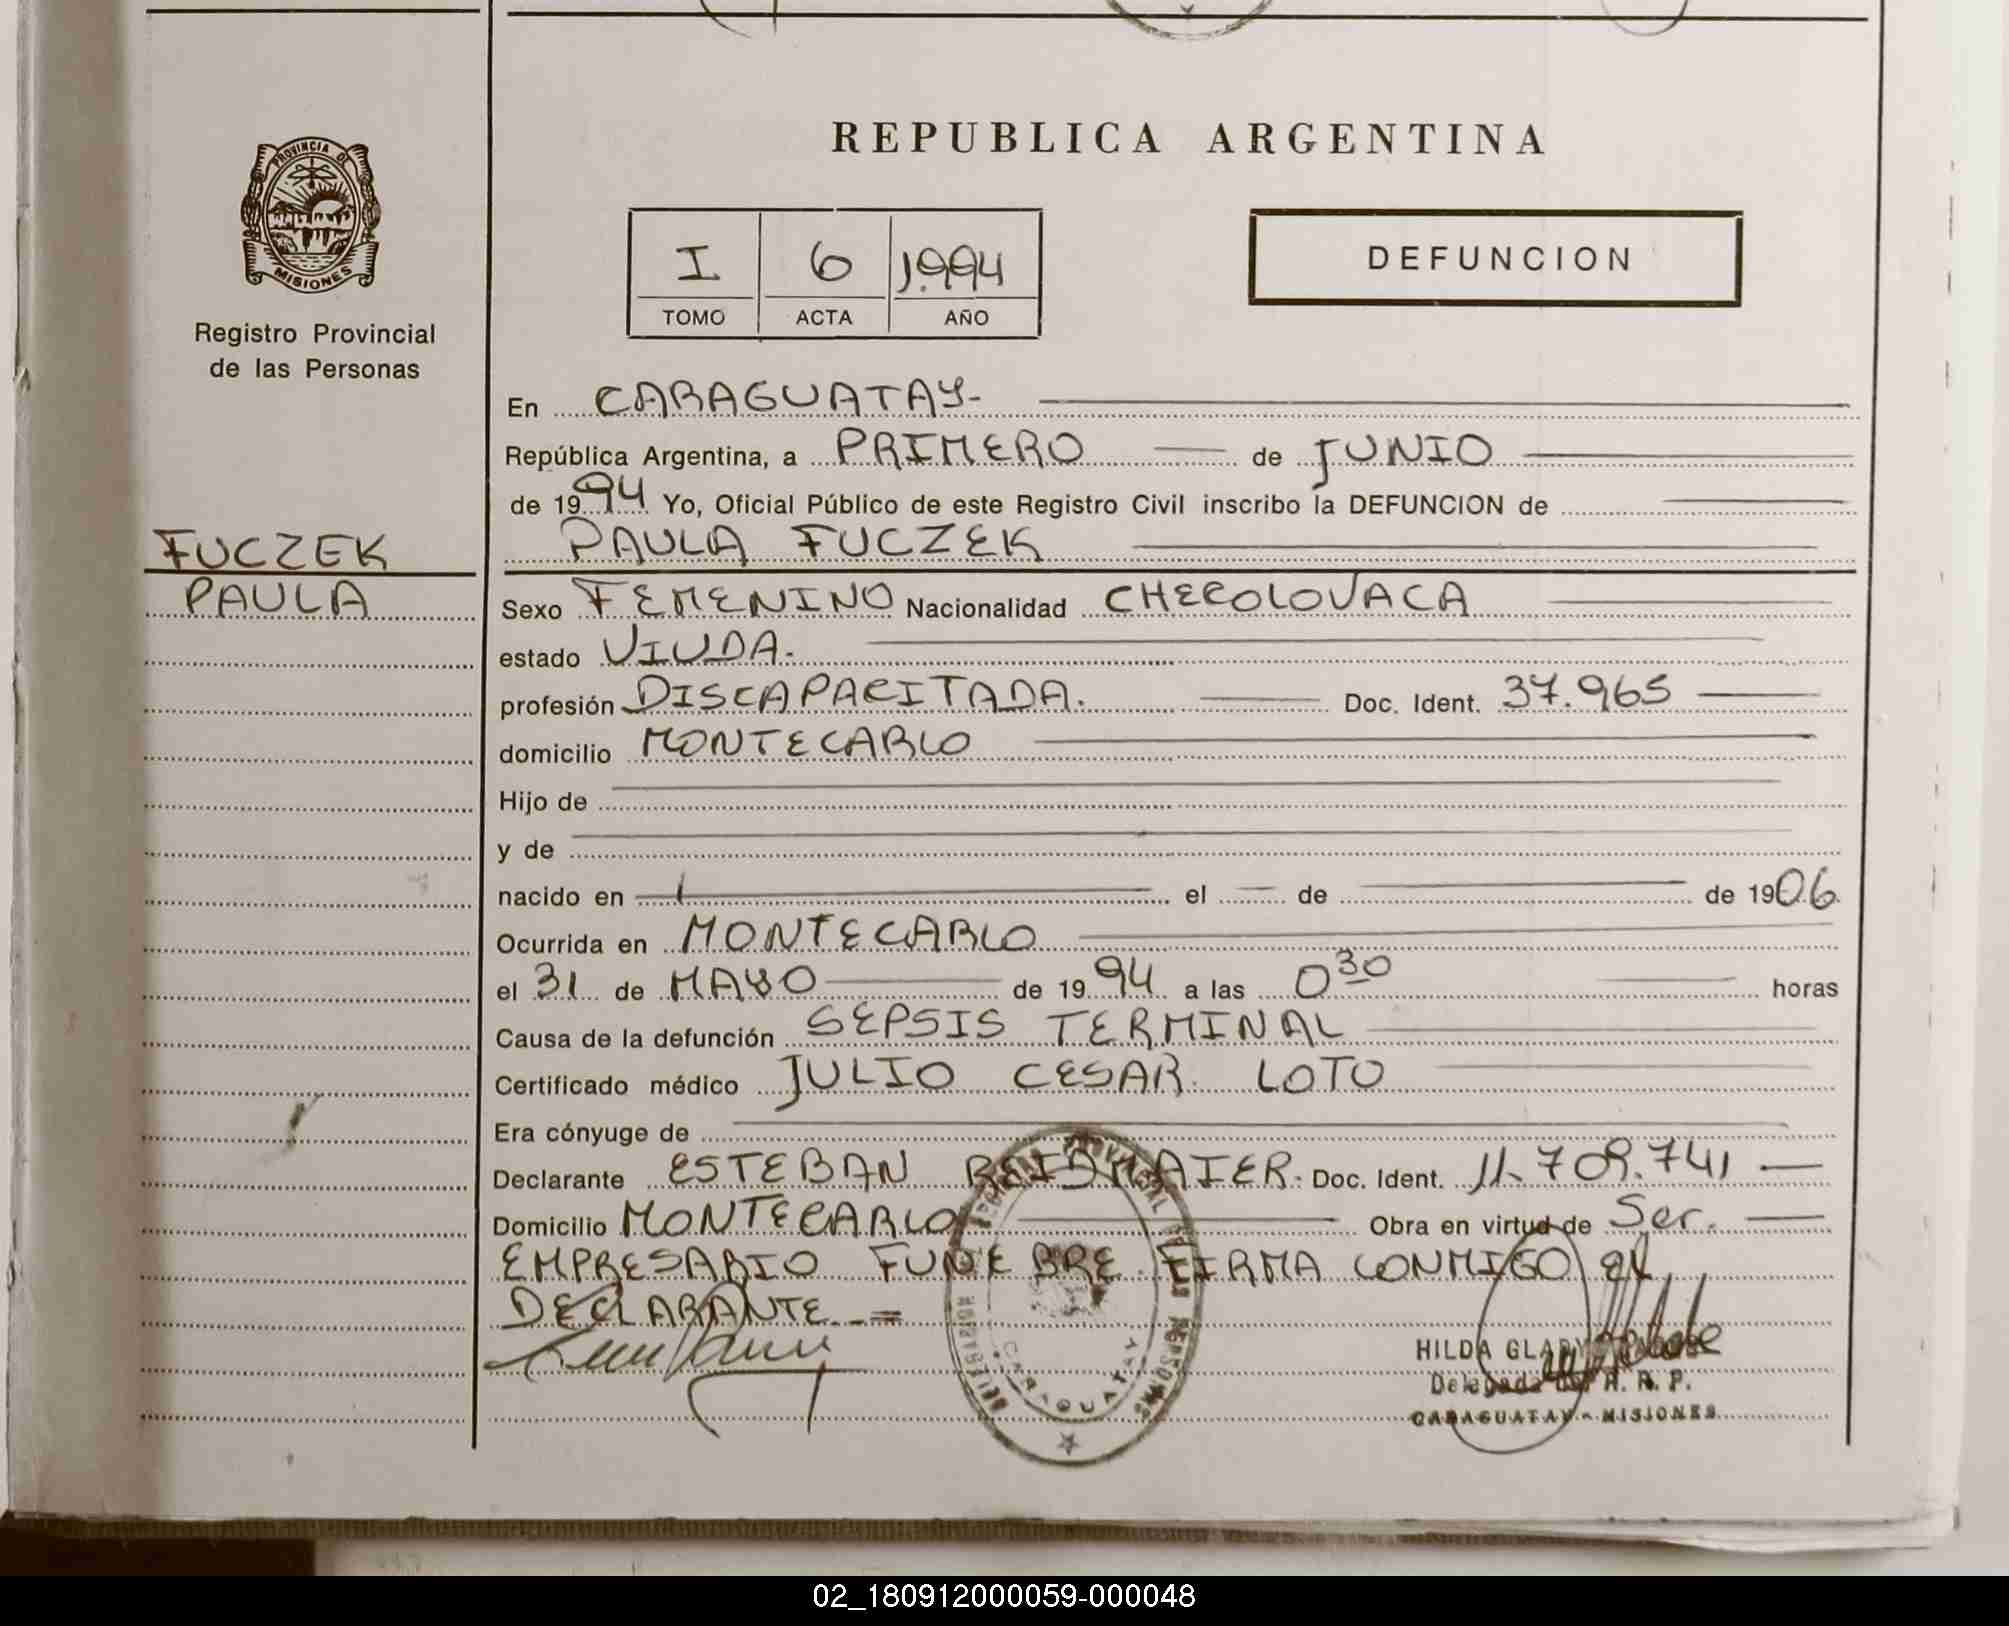 REPUBLICA ARGENTINA
PROVINCIA DE
MISIONES
Registro Provincial
de las Personas
I 6 1.994
TOMO ACTA AÑO
DEFUNCION
En CARAGUATAY-
República Argentina, a PRIMERO de JUNIO
de 1994 Yo, Oficial Público de este Registro Civil inscribo la DEFUNCION de
FUCZEK
PAULA
PAULA FUCZEK
Sexo FEMENINO Nacionalidad CHECOLOVACA
estado VIUDA.
profesión DISCAPACITADA. Doc. Ident. 37.965
domicilio MONTECARLO
Hijo de
y de
nacido en el de de 1906.
Ocurrida en MONTECARLO
el 31 de MAYO de 1994 a las 0 30 horas
Causa de la defunción SEPSIS TERMINAL
Certificado médico JULIO CESAR LOTO
Era cónyuge de
Declarante ESTEBAN Doc. Ident. 11.709.741
Domicilio MONTECARLO Obra en virtud de Ser.
EMPRESARIO FUNEBRE FIRMA CONMIGO el
DECLARANTE.-=
HILDA
Delegada del R. R. P.
CARAGUATAY - MISIONES
CARAGUATAY
02_180912000059-000048